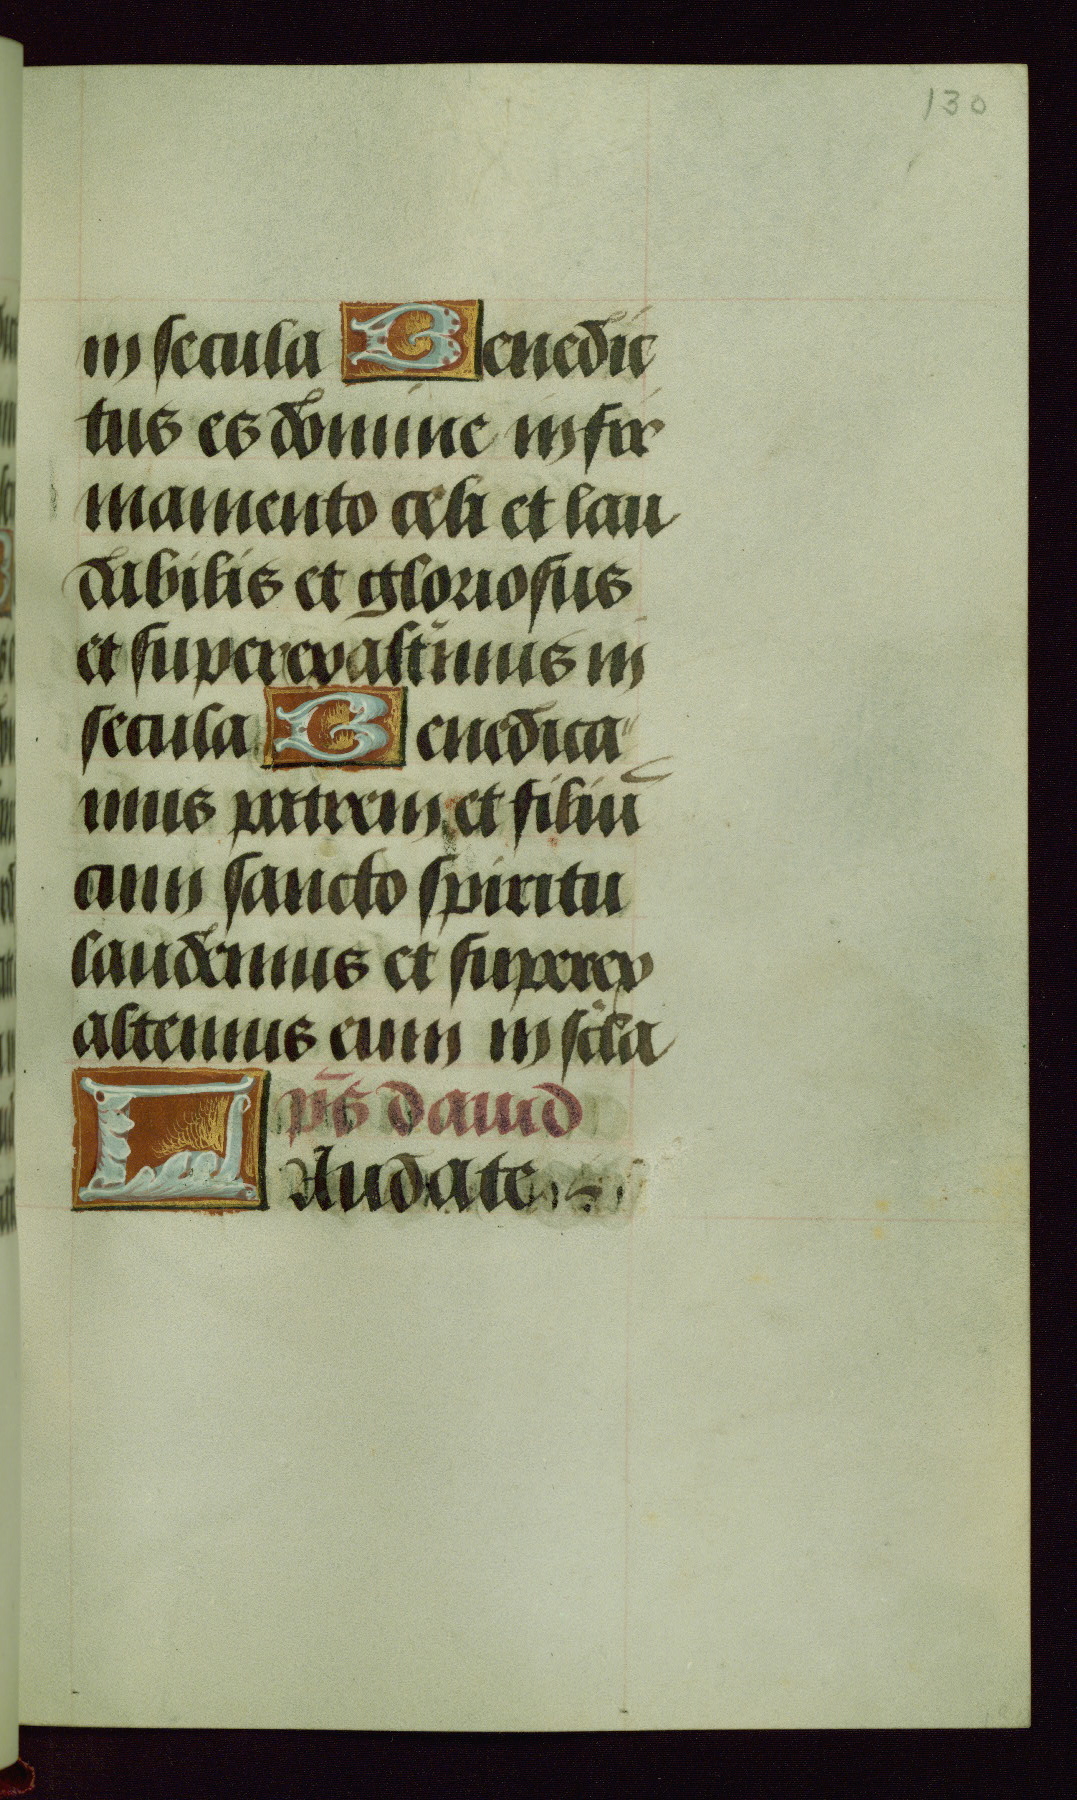 130
in secula Benedic
tus es domine in fir
mamento celi et lau
dabilis et gloriosus
et superexaltatus in
secula Benedica
mus patrem et filiū
cum sancto spiritu
laudemus et superex
altemus eum in scła
pūs dauid
Laudate